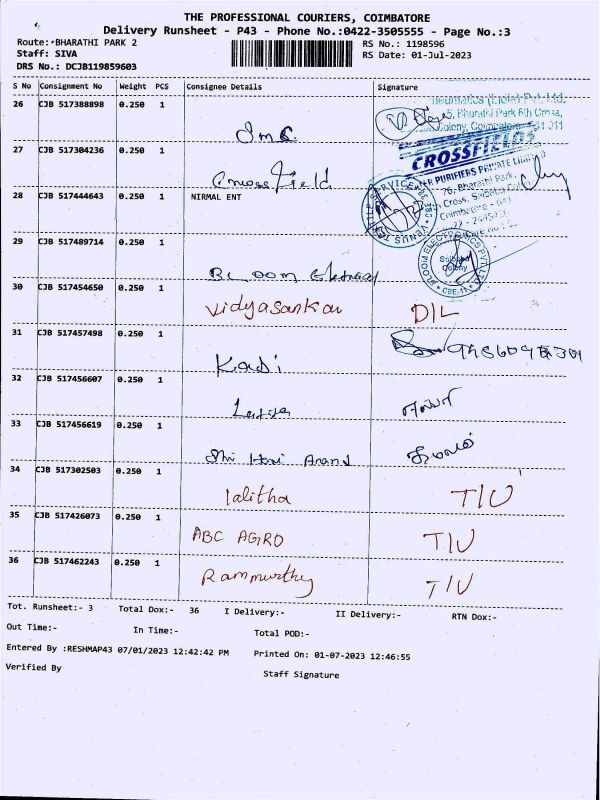 THE PROFESSIONAL COURIERS, COIMBATORE
Delivery Runsheet - P43 - Phone No.:0422-3505555 - Page No.:3
Route: BHARATHI PARK 2
RS No.: 1198596
Staff: SIVA
RS Date: 01-Jul-2023
DRS No.: DCJB119859603
S No Consignment No Weight PCS Consignee Details Signature
26 CJB 517388898 0.250 1
5, Bharathi Park 6th Cross,
27 CJB 517304236 0.250 1
CROSSFIELDS
Cross Field
PURIFIERS PRIVATE
76, Bharathi Park,
28 CJB 517444643 0.250 1 NIRMAL ENT
29 CJB 517489714 0.250 1
Bloom Electronics
30 CJB 517454650 0.250 1
Vidyasankar D/L
31 CJB 517457498 0.250 1
32 CJB 517456607 0.250 1
33 CJB 517456619 0.250 1
Shri Hari Anand
34 CJB 517302503 0.250 1
lalitha T/U
35 CJB 517426073 0.250 1
ABC AGRO T/U
36 CJB 517462243 0.250 1
Rammurthy T/U
Tot. Runsheet:- 3 Total Dox:- 36 I Delivery:- II Delivery:- RTN Dox:-
Out Time:- In Time:- Total POD:-
Entered By :RESHMAP43 07/01/2023 12:42:42 PM Printed On: 01-07-2023 12:46:55
Verified By Staff Signature